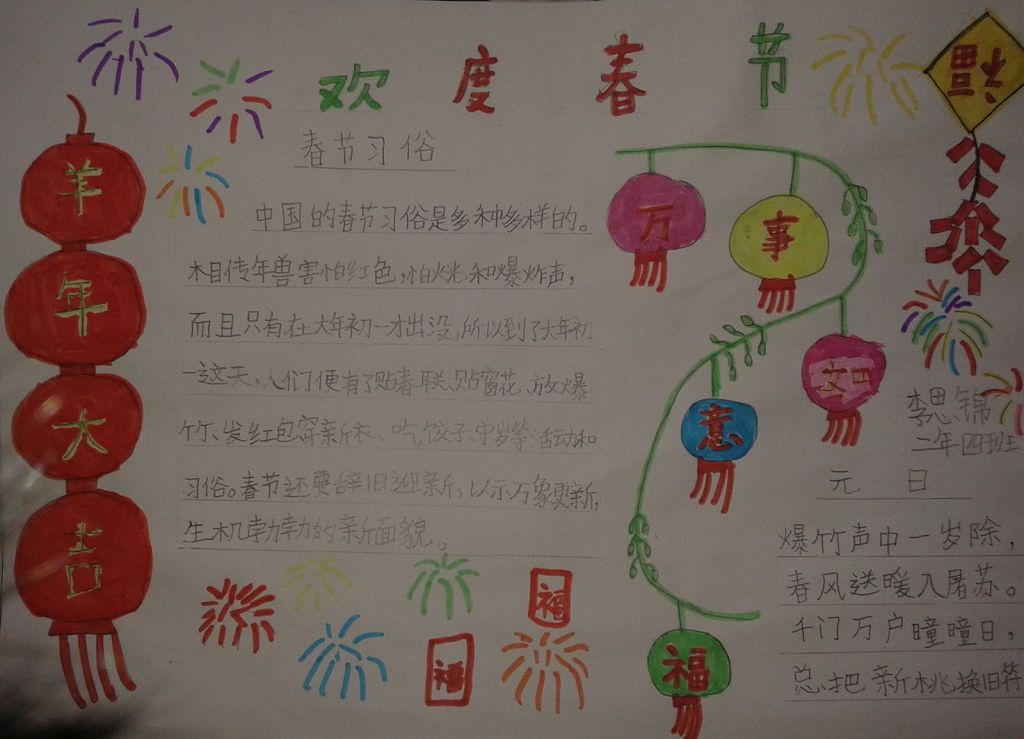 欢度春节
福
羊年大吉
春节习俗
中国的春节习俗是多种多样的。
相传年兽害怕红色,怕火光和爆炸声,
而且只有在大年初一才出没,所以到了大年初
一这天,人们便有了贴春联、贴窗花、放爆
竹、发红包穿新衣、吃饺子、守岁等活动和
习俗。春节还要辞旧迎新,以示万象更新,
生机勃勃的新面貌。
万事如意
福
福
福
李思锦
二年四班
元日
爆竹声中一岁除,
春风送暖入屠苏。
千门万户曈曈日,
总把新桃换旧符